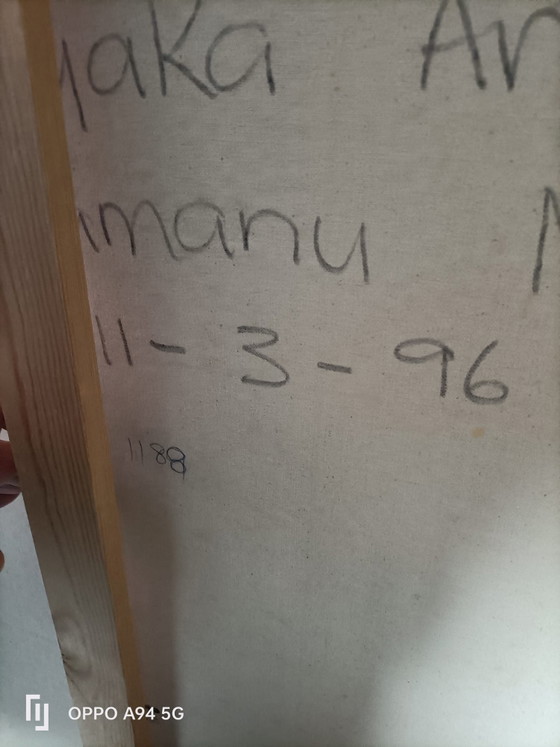 yaka Ar
manu
11-3-96
1188
OPPO A94 5G